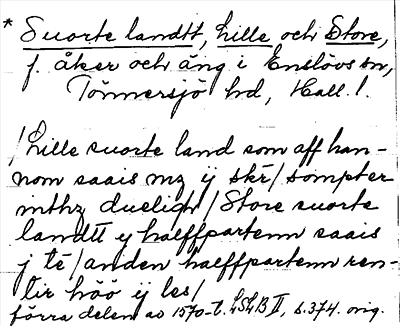 * Suorte landtt, Lille och Store,
f. åker och äng i Enslövs sn,
Tönnersjö hd, Hall. l.
/Lille suorte land som aff han-
nom saais mz ij skr/ sompter
inthz dueligtt/ Store suorte
landtt y halffpartenn saais
j te/ anden halffpartenn ren-
tir höö ij les/
förra delen av 1570-t. LSkB II, s. 374. orig.